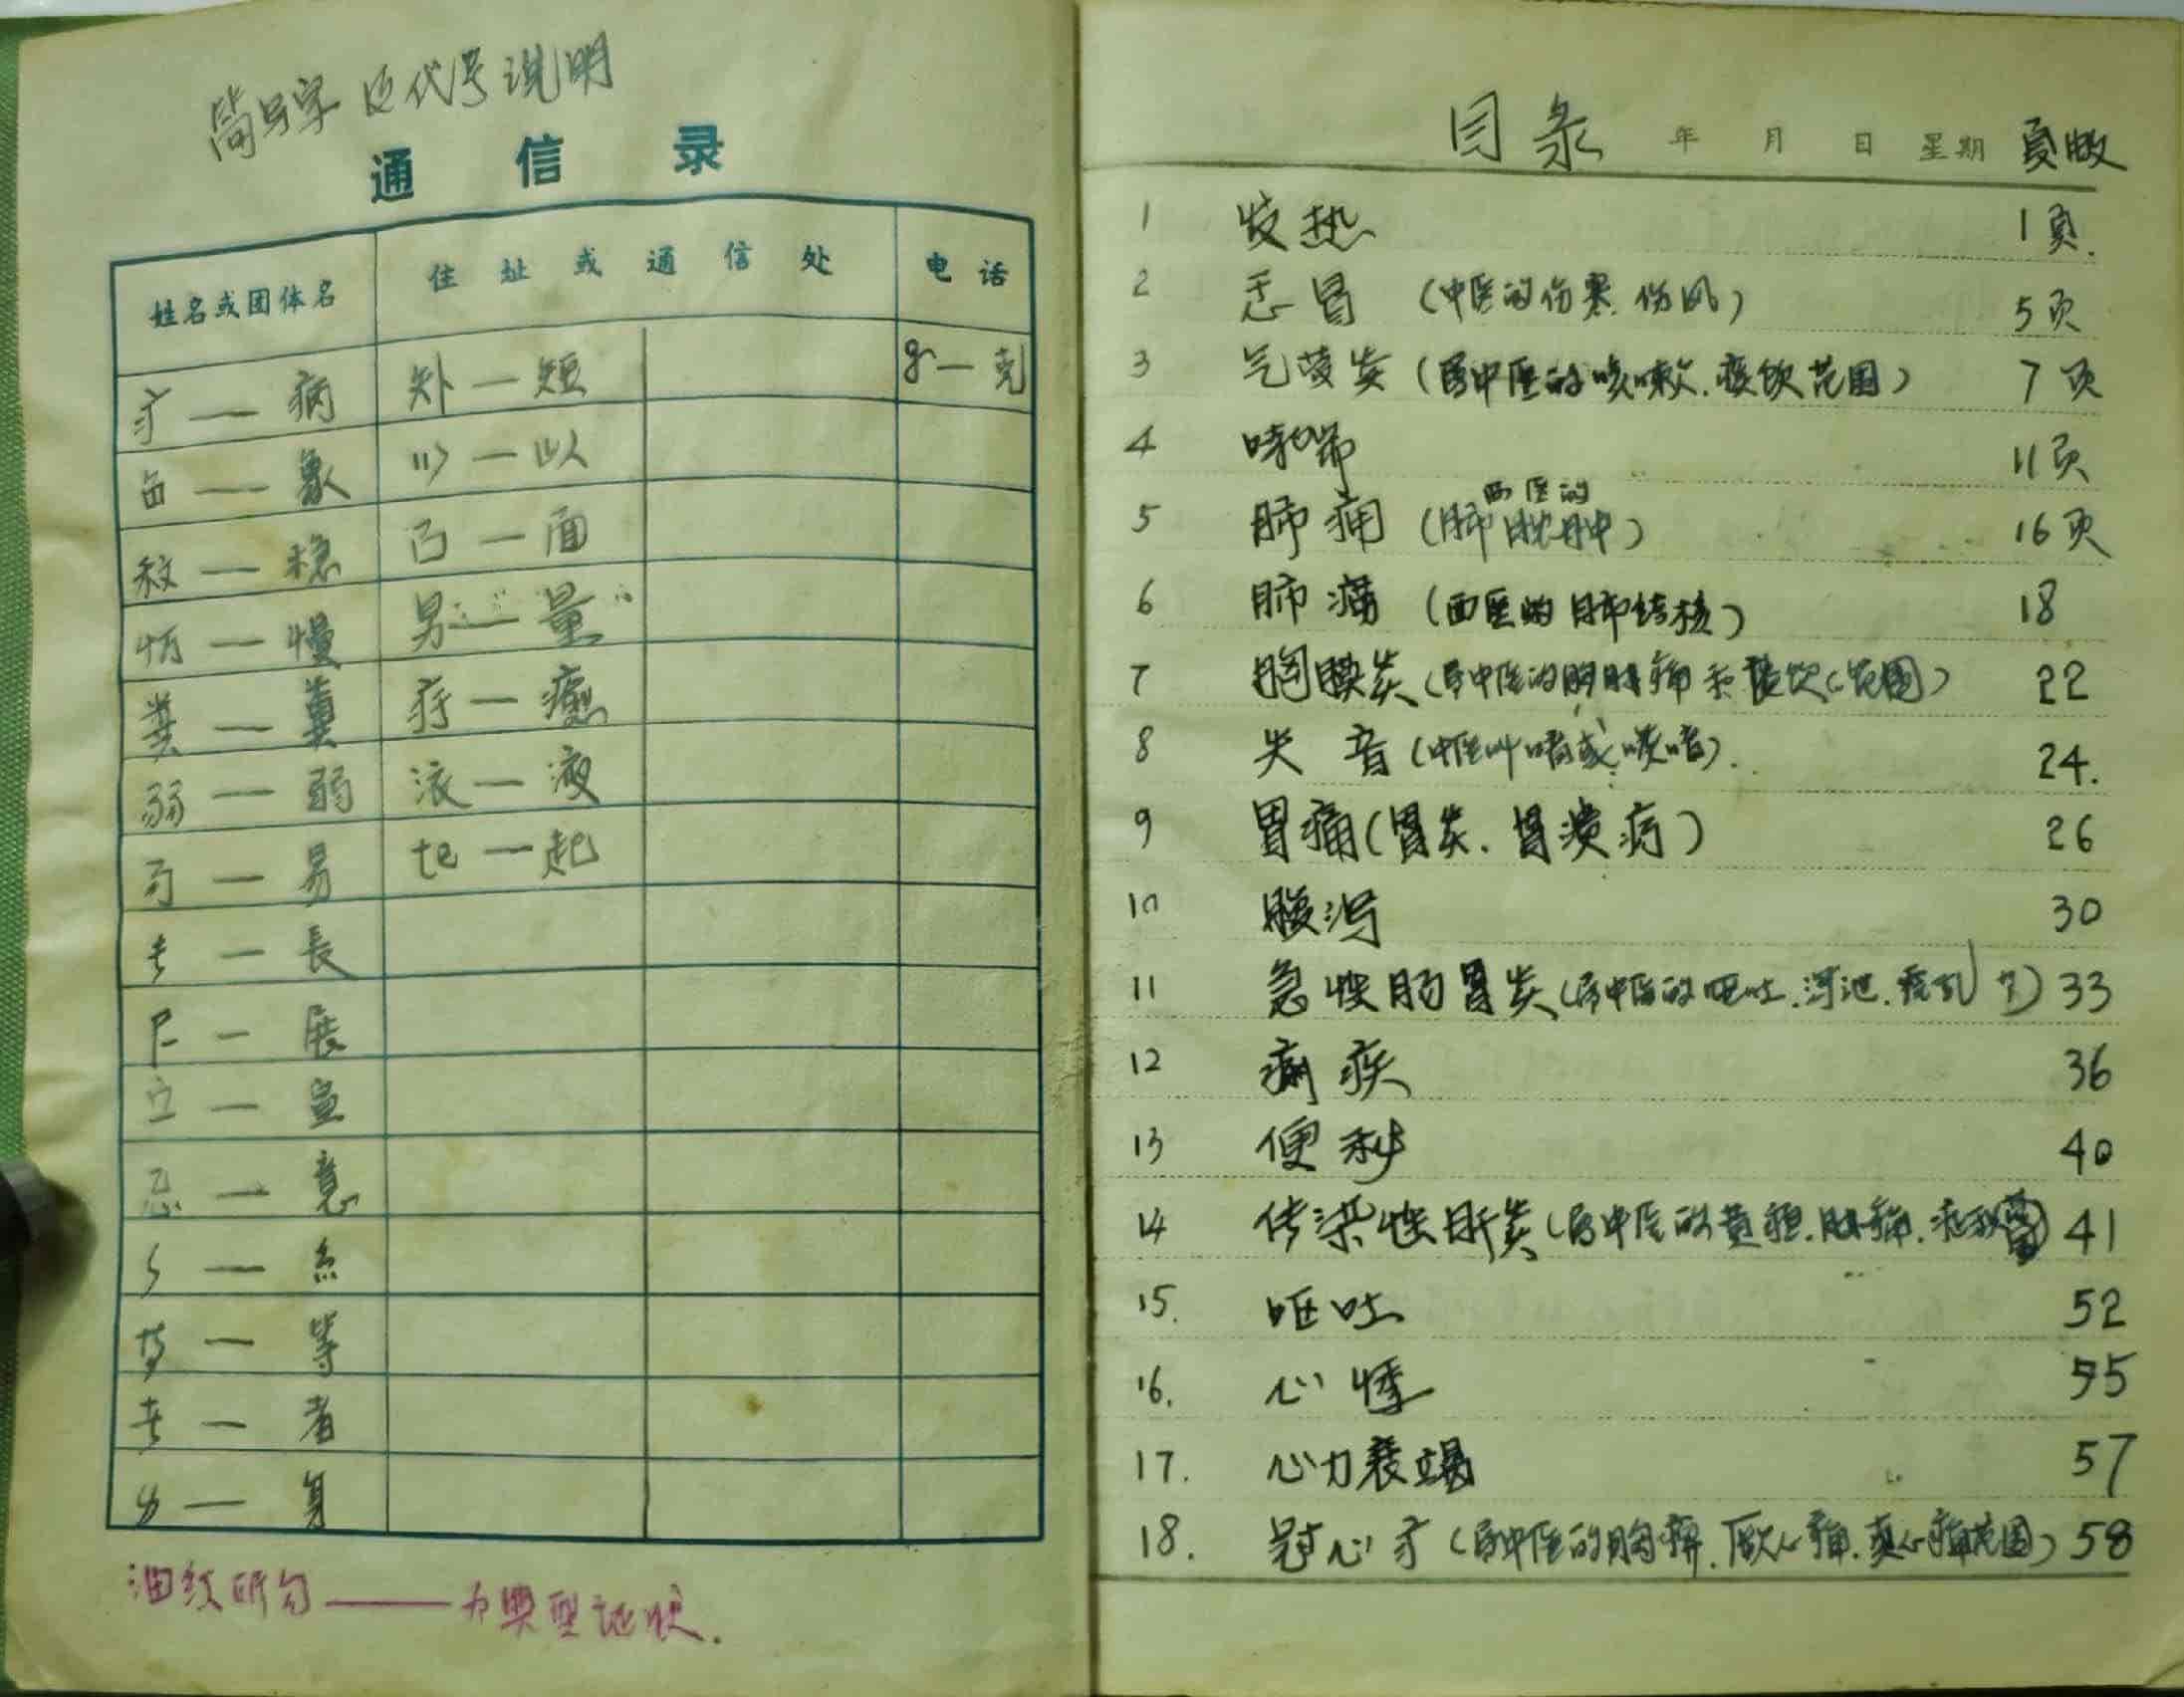 简写字及代号说明
通信录
姓名或团体名 住址或通信处 电话
疒 — 病 矢卜 — 短 gr — 克
— 象 — 以
— 稳 — 面
忟 — 慢 — 量
— 粪 — 癒
— 弱 — 液
— 易 — 起
— 長
尸 — 展
立 — 宣
忍 — 意
— 糸
— 等
— 者
— 身
油紋所勾 —— 为典型证状.
目录 年 月 日 星期 頁版
1 发热 1页.
2 感冒 (中医的伤寒.伤风) 5页
3 气管炎 (属中医的咳嗽.痰饮范围) 7页
4 哮喘 11页
5 肺痈 (西医的肺脓肿) 16页
6 肺痨 (西医的肺结核) 18
7 胸膜炎 (属中医的胸胁痛和悬饮范围) 22
8 失音 (中医叫喑或喉喑). 24.
9 胃痛 (胃炎.胃溃疡) 26
10 腹泻 30
11 急性肠胃炎 (属中医的呕吐.泻泄.霍乱) 33
12 痢疾 36
13 便秘 40
14 传染性肝炎 (属中医的黄疸.胁痛. 41
15. 呕吐 52
16. 心悸 55
17. 心力衰竭 57
18. 冠心疒 (属中医的胸痹.厥心痛.真心痛范围) 58